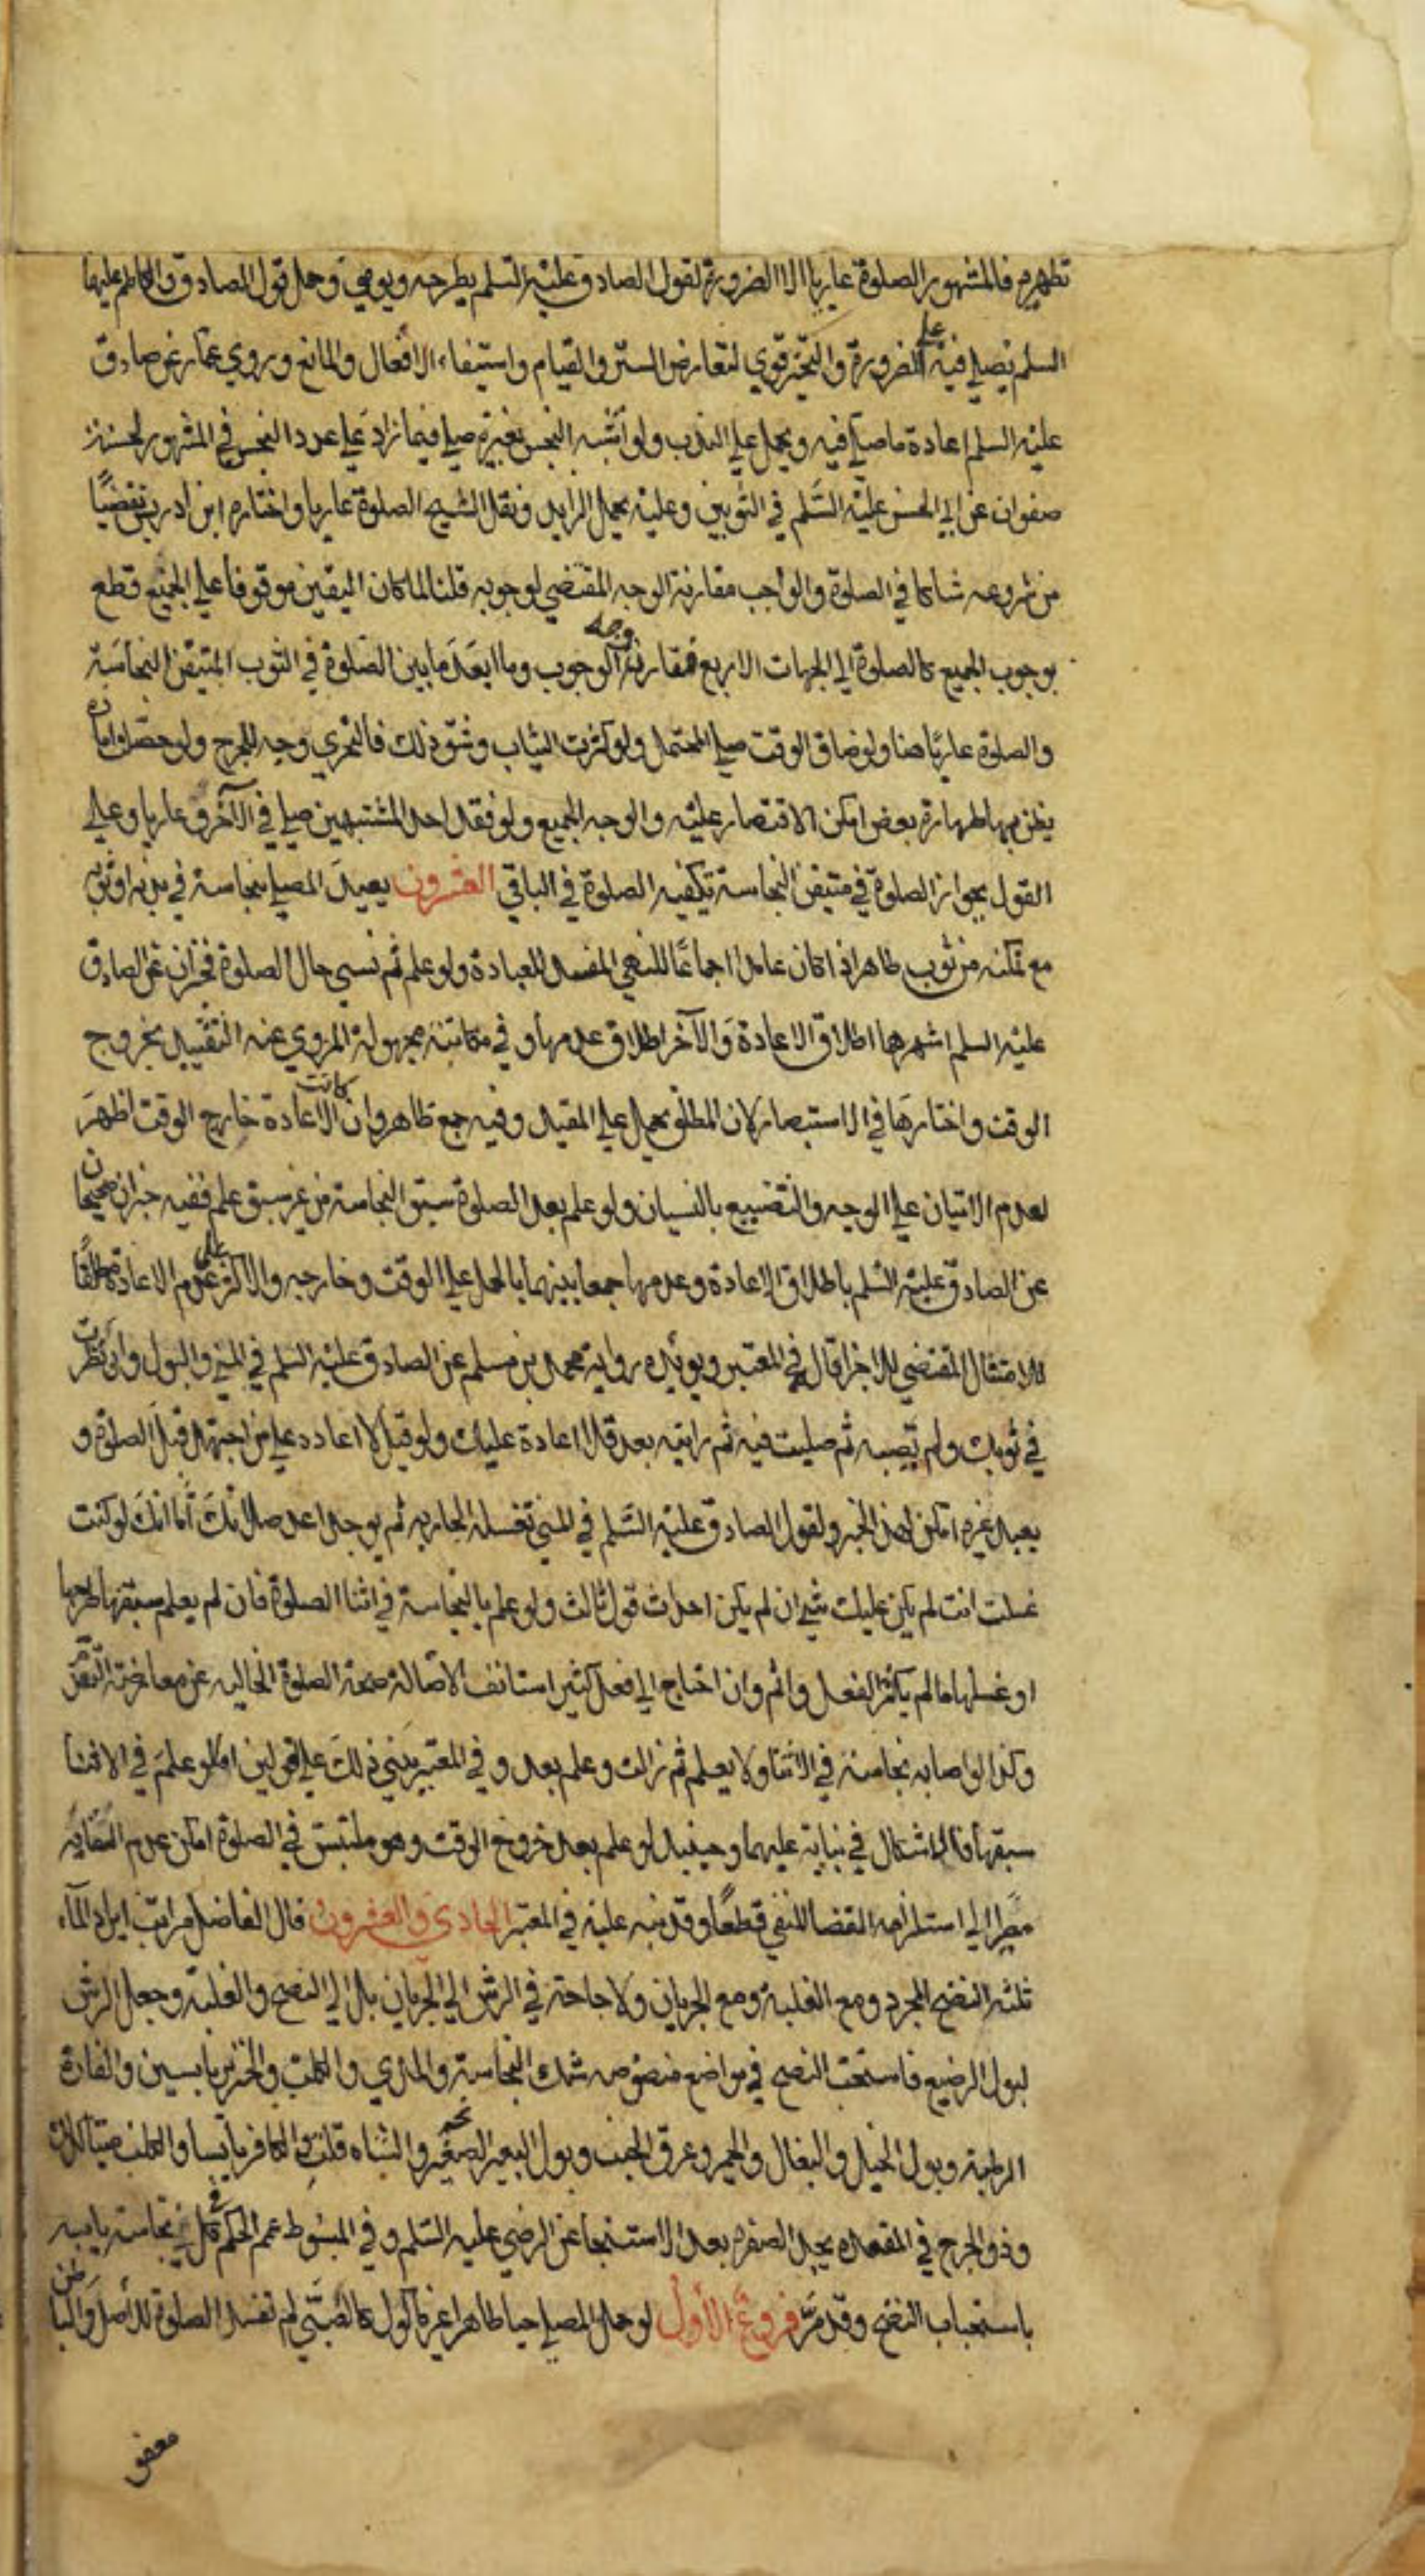 تطهيره فالمشهور الصلوة عاريا الا الضرورة لقول الصادق عليه السلم يطرحه ويومي وحمل قول الصادق والكاظم عليهما
السلم يصلي فيه على الضرورة والتخير قوي لتعارض الستر والقيام واستيفاء الافعال والمانع وروي عمار عن صادق
عليه السلم اعادة ما صلي فيه ويحمل علي الندب ولو اشبه النجس بغيره صلي فيما زاد علي عدد النجس في المشهور لحسنة
صفوان عن ابي الحسن عليه السلم في الثوبين وعليه يحمل الزايد ونقل الشيخ الصلوة عاريا واختاره ابن ادريس تفصيا
من شروعه شاكا في الصلوة والواجب مقارنة الوجه المقتضي لوجوبه قلنا لما كان اليقين موقوفا علي الجميع قطع
بوجوب الجميع كالصلوة الي الجهات الاربع فمقارنة وجه الوجوب وما ابعد ما بين الصلوة في الثوب المتيقن النجاسة
والصلوة عاريا هنا ولو ضاق الوقت صلي المحتمل ولو كثرت الثياب وشق ذلك فالتحري وجه للحرج ولو حصل امارة
يظن بها طهارة بعض امكن الاقتصار عليه والوجه الجميع ولو فقد احد المشتبهين صلي في الآخر وعاريا وعلي
القول بجواز الصلوة في متيقن النجاسة تكفيه الصلوة في الباقي العشرون يعيد المصلي بنجاسة في بدنه او ثوبه
مع تمكنه من ثوب طاهر اذا كان عامدا اجماعا للنهي المفسد للعبادة ولو علم ثم نسي حال الصلوة فخبران عن الصادق
عليه السلم اشهرها اطلاق الاعادة والآخر اطلاق عدمها وفي مكاتبة مجهولة المروي عنه التقييد بخروج
الوقت واختارها في الاستبصار لان المطلق يحمل علي المقيد وفيه جمع ظاهر وان كانت الاعادة خارج الوقت اظهر
لعدم الاتيان علي الوجه والتضييع بالنسيان ولو علم بعد الصلوة سبق النجاسة من غير سبق علم ففيه خبران صحيحان
عن الصادق عليه السلم باطلاق الاعادة وعدمها جمعا بينهما بالحمل علي الوقت وخارجه والاكثر على عدم الاعادة مطلقا
للامتثال المقتضي للاجزا قال في المعتبر ويؤيده رواية محمد بن مسلم عن الصادق عليه السلم في المني والبول وان نظرت
في ثوبك ولم تصبه ثم صليت فيه ثم رايته بعد فلا اعادة عليك ولو قيل لا اعادة علي من اجتهد قبل الصلوة و
يعيد غيره امكن لهذا الخبر ولقول الصادق عليه السلم في المني تغسله الجاريه ثم يوجد اعد صلاتك أما انك لو كنت
غسلت انت لم يكن عليك شي ان لم يكن احداث قول ثالث ولو علم بالنجاسة في اثنا الصلوة فان لم يعلم سبقها طرحها
او غسلها ما لم يكثر الفعل واتم وان احتاج الي فعل كثير استانف الاصالة صحة الصلوة الخاليه عن معارضة التيقن
وكذا لو اصابه نجاسة في الاثنا ولا يعلم ثم زالت وعلم بعد و في المعتبر يبني ذلك علي القولين اما لو علم في الاثنا
سبقها فالاشكال في بنايه عليهما وحينيد لو علم بعد خروج الوقت وهو ملتبس في الصلوة امكن عدم التفاته
مصيرا الي استلزامه القضا المنفي قطعا وقد نبه عليه في المعتبر الحادي والعشرون قال الفاضل مراتب ايراد المآء
ثلثه النضح المجرد ومع الغلبة ومع الجريان ولا حاجة في الرش الي الجريان بل الي النضح والغلبة وجعل الرش
لبول الرضيع فاستحب النضح في مواضع منصوصه شك النجاسة والمذي والكلب والخنزير يابسين والفارة
الرطبة وبول الخيل والبغال والحمير وعرق الجنب وبول البعير والشاه قلت والكافر يابسا والكلب ميتا كذلك
وذو الجرح في المقعده يجد الصفره بعد الاستنجا عن الرضي عليه السلم و في المبسوط عمم الحكم في كل نجاسة يابسه
باستحباب النضح وقد مر فروع الأول لو حمل المصلي حيا طاهرا غير مأكول كالصبي لم تفسد الصلوة للاصل
معفو